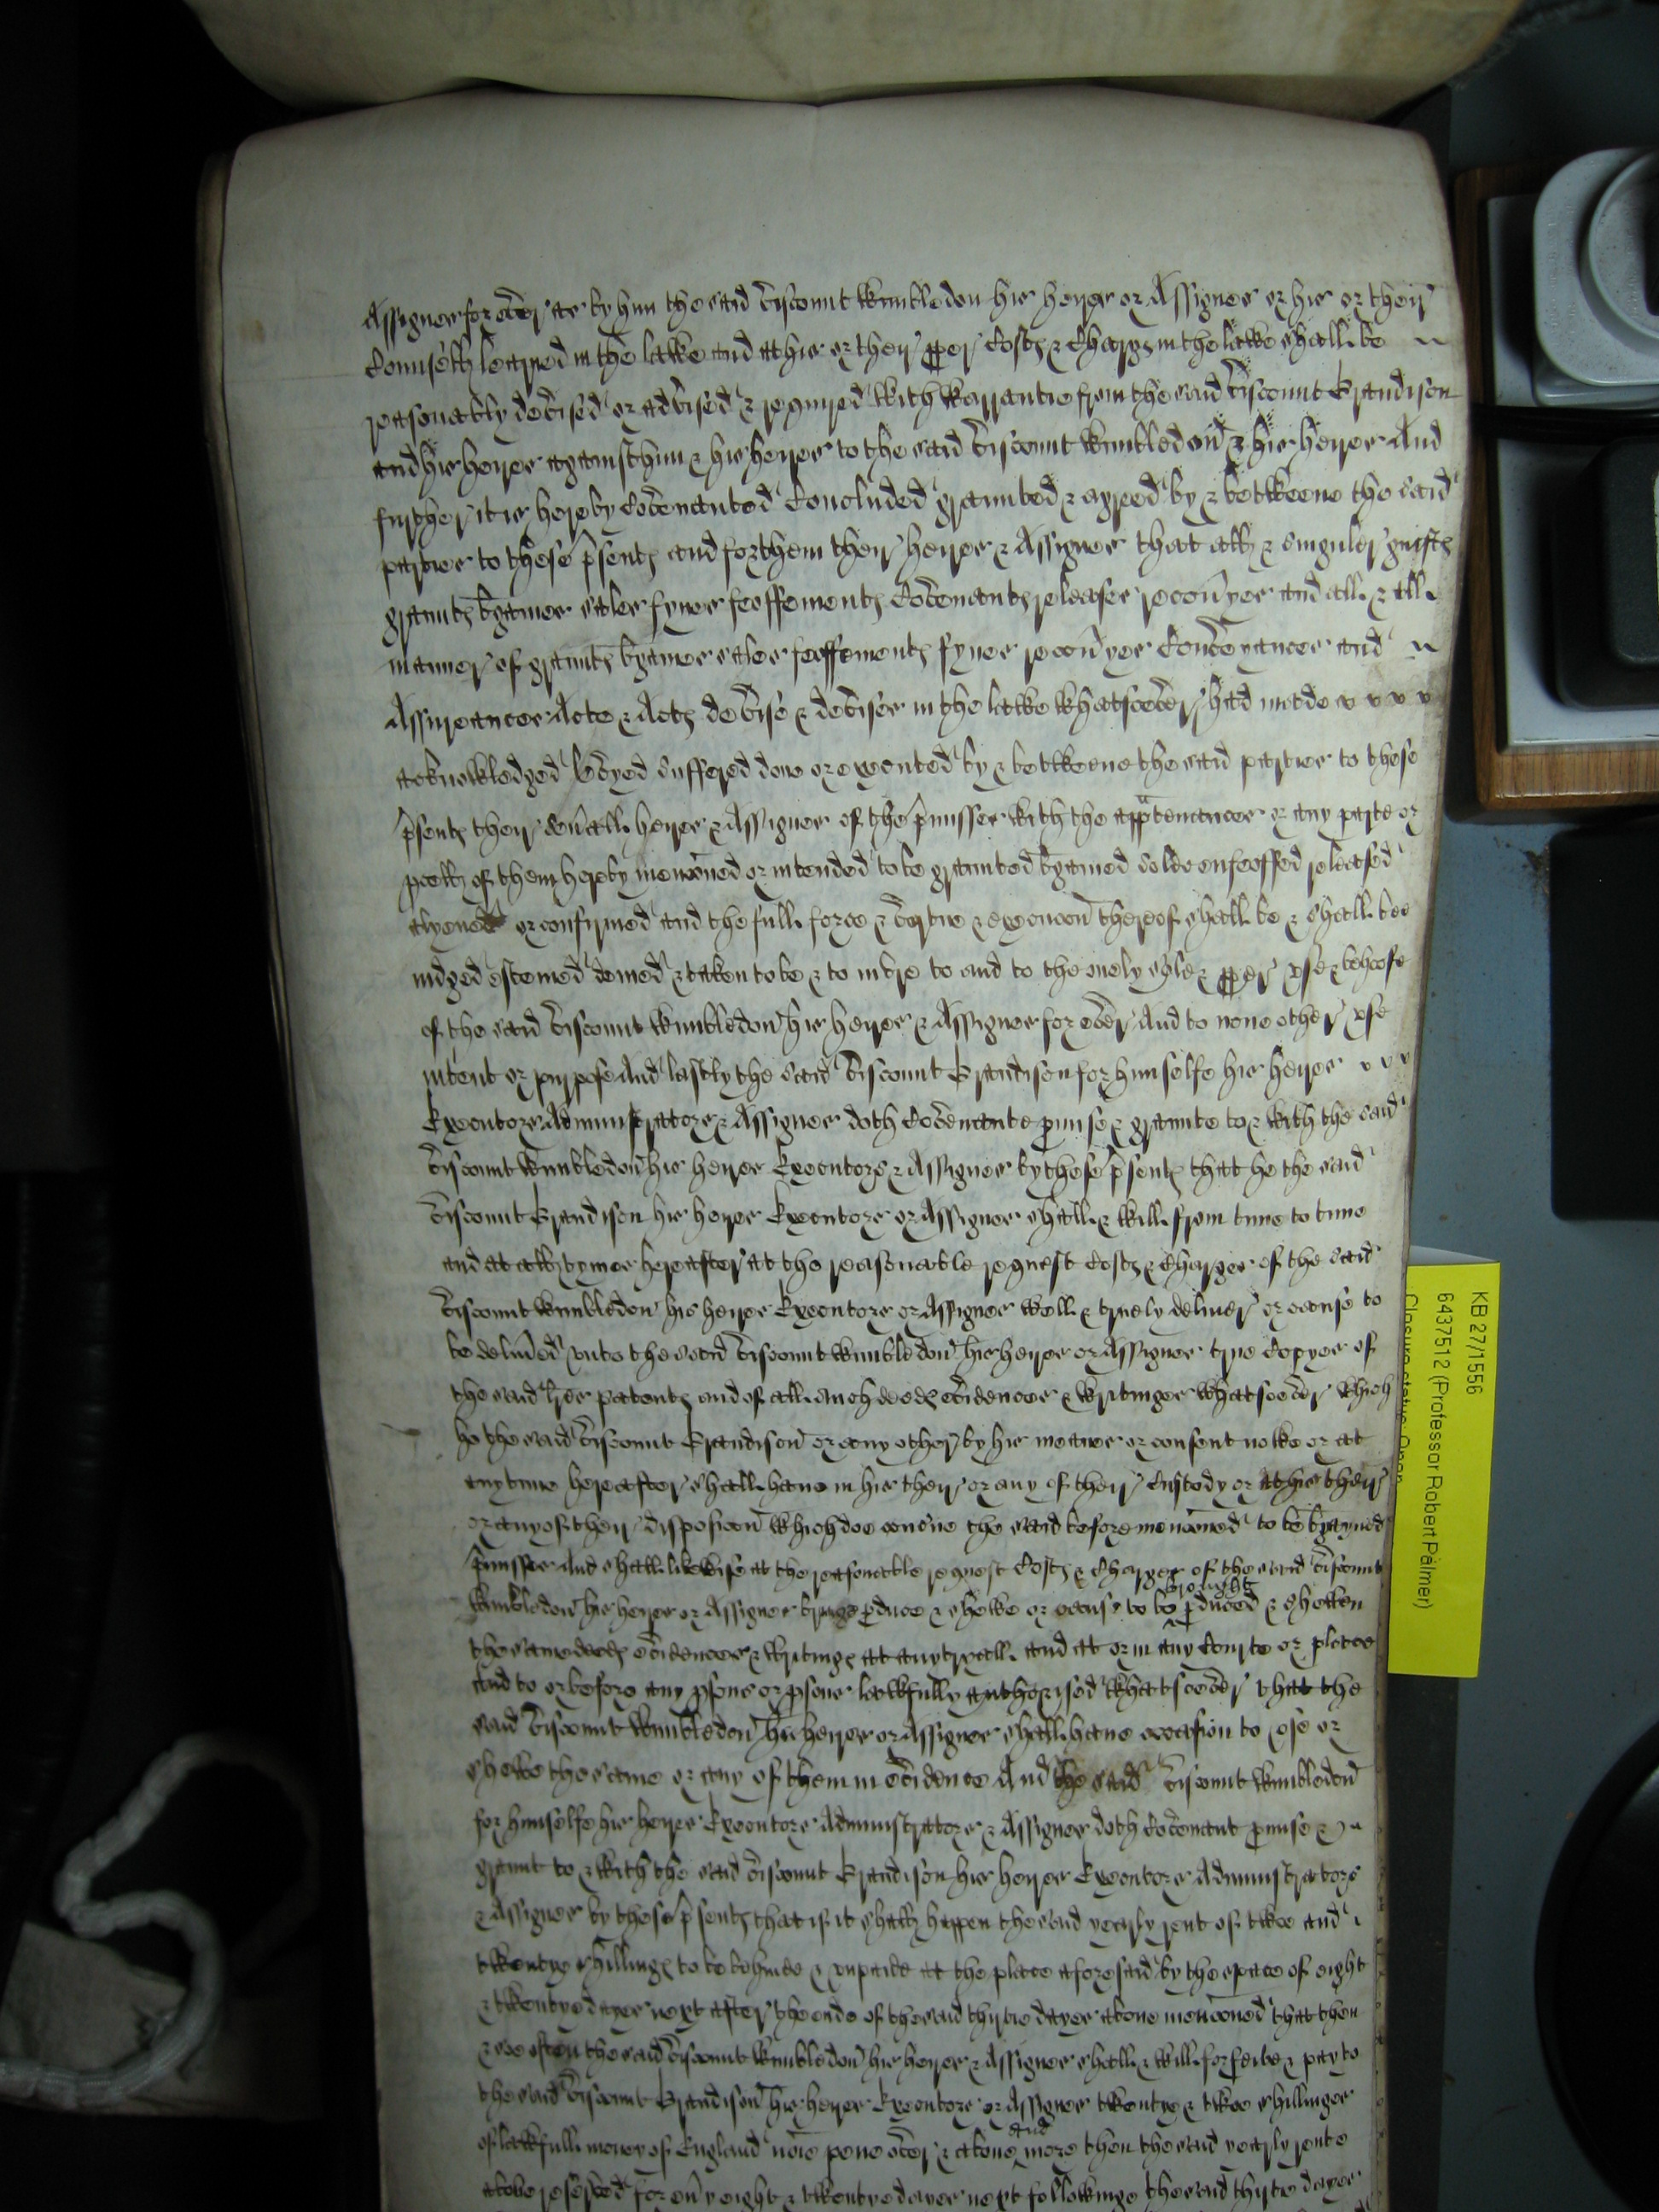 Assignes for ever as by him the said viscount Wimbledon his heyres or Assignes or his or their
Councell learned in the lawe and at his or their pper Costs & Charges in the lawe shall be
reasonably devised or advised & required with warrantie from the said viscount Grandison
and his heyres against him & his heyres to the said viscount Wimbledon & his heyres And
further it is hereby Covenanted Concluded graunted & agreed by & betweene the said
parties to these psents and for them their heyres & Assignes that all & singuler guifts
graunts bgaines sales fynes feoffements Covenants releases recovyes and all & all
manner of graunts bgaines sales feoffements fynes recovyes Conveyances and
Assurances Acte & Acts devise & devises in the lawe whatsoever had made
acknowledged levyed suffered done or executed by & betweene the said parties to these
psents their sevall heyres & Assignes of the pmisses with the apptenances or any parte or
pcell of them hereby menconed or intended to be graunted bgained solde enfeoffed released
alyened or confirmed and the full force & vertue & execucon thereof shall be & shall bee
iudged esteemed demed & taken to be & to inure to and to the onely sole & pper use & behoofe
of the said viscount Wimbledon his heyres & Assignes for ever And to none other use
intent or purpose And lastly the said viscount Grandison for himselfe his heyres
Executors Administrators & Assignes doth Covenante pmise & graunte to & with the said
viscount Wimbledon his heyres Executors & Assignes by these psents that he the said
viscount Grandison his heyres Executors or Assignes shall & will from time to time
and at all tymes hereafter at the reasonable request Costs & Charges of the said
viscount Wimbledon his heyres Executors or Assignes well & truely deliver or cause to
be delived unto the said viscount Wimbledon his heyres or Assignes true Copyes of
the said lres patents and of all such deeds evidences & writinges whatsoever which
he the said viscount Grandison or any other by his meanes or consent nowe or at
any time hereafter shall have in his their or any of their Custody or at his their
or any of their disposicon which doe concne the said before menconed to be bgayned
pmisses And shall likewise at the reasonable request Costs & Charges of the said viscount
Wimbledon his heyres or Assignes bringe pduce & shewe or cause to be brought pduced & shewen
the same deeds evidences & writings at any tryall and at or in any Courte or place
and to or before any psone or psons lawfully authorised whatsoever that the
said viscount Wimbledon his heyres or Assignes shall have occasion to use or
shewe the same or any of them in evidence And the said viscount Wimbledon
for himselfe his heyres Executors Administrators & Assignes doth Covenant pmise &
graunt to & with the said viscount Grandison his heyres Executors Administrators
& Assignes by these psents that if it shall happen the said yearly rent of two and
twentye shillings to be behinde & unpaide at the place aforesaid by the space of eight
& twentye dayes next after the ende of the said thirtie dayes above menconed that then
& soe often the said viscount Wimbledon his heyres & Assignes shall & will forfeite & pay to
the said viscount Grandison his heyres Executors or Assignes twentye & two shillinges
of lawfull money of England noie pene over & above and more then the said yearly rente
above reserved for evy eight & twentye dayes next followinge the said thirtie dayes
KB 27/1556
6437512 (Professor Robert Palmer)
Closure status: Open